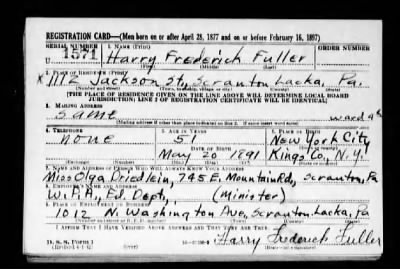 REGISTRATION CARD—(Men born on or after April 28, 1877 and on or before February 16, 1897)
SERIAL NUMBER
1. NAME (Print)
U 1571 Harry Frederick Fuller
(First) (Middle) (Last)
2. PLACE OF RESIDENCE (Print)
x 1112 Jackson St., Scranton, Lacka, Pa.
(Number and street) (Town, township, village, or city) (County) (State)
[THE PLACE OF RESIDENCE GIVEN ON THE LINE ABOVE WILL DETERMINE LOCAL BOARD
JURISDICTION; LINE 2 OF REGISTRATION CERTIFICATE WILL BE IDENTICAL]
3. MAILING ADDRESS
Same ward 4th
[Mailing address if other than place indicated on line 2. If same insert word same]
4. TELEPHONE
5. AGE IN YEARS
6. PLACE OF BIRTH
none 51 New York City
DATE OF BIRTH
May 20 1891 Kings Co, N.Y.
(Exchange) (Number) (Mo.) (Day) (Yr.) (State or country)
7. NAME AND ADDRESS OF PERSON WHO WILL ALWAYS KNOW YOUR ADDRESS
Miss Olga 745 E. Mountain Rd, Scranton, Pa
8. EMPLOYER'S NAME AND ADDRESS
W.P.A., Ed. Dept., (Minister)
9. PLACE OF EMPLOYMENT OR BUSINESS
1012 N. Washington Ave, Scranton, Lacka, Pa
(Number and street or R. F. D. number) (Town) (County) (State)
I AFFIRM THAT I HAVE VERIFIED ABOVE ANSWERS AND THAT THEY ARE TRUE.
D. S. S. Form 1
(Revised 4-1-42) (over)
Harry Frederick Fuller
(Registrant's signature)